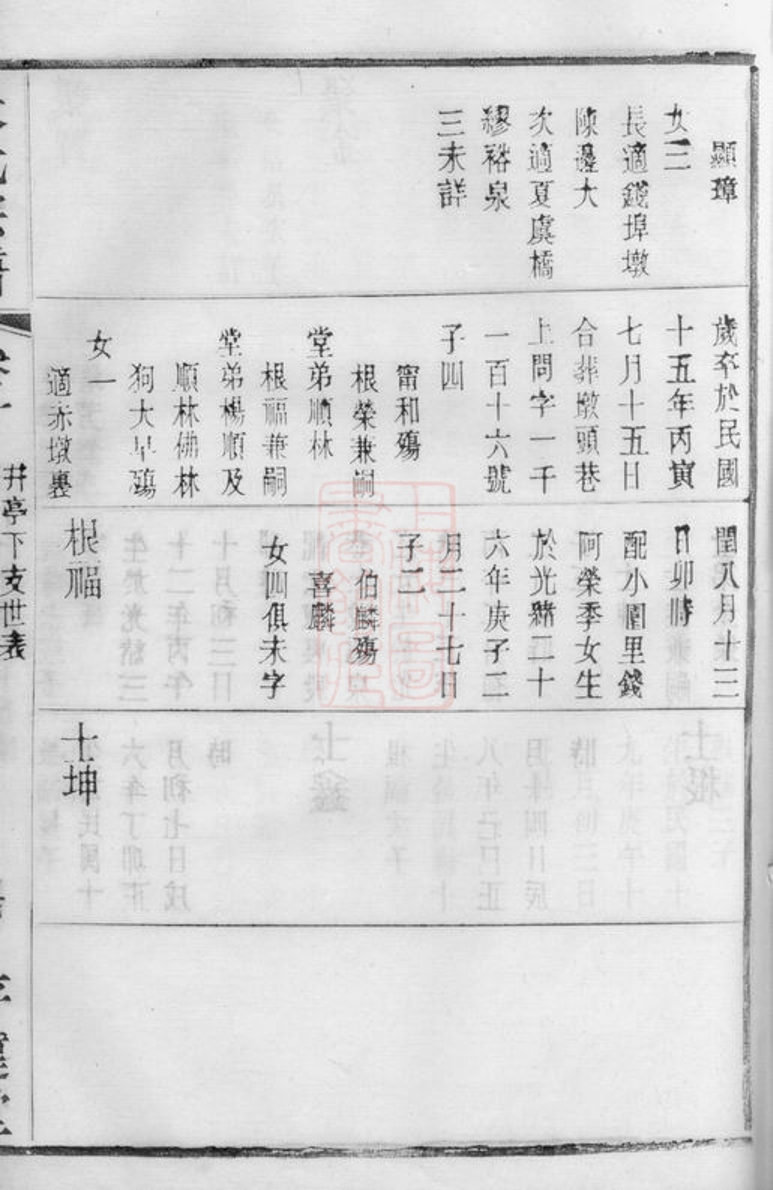 顯璋
女三
長適錢埠墩
陳邊大
次適夏虞橋
繆裕泉
三未詳
歲卒於民國
十五年丙寅
七月十五日
合葬墩頭巷
上問字一千
一百十六號
子四
甯和殤
根榮兼嗣
堂弟順林
根福兼嗣
堂弟楊順及
順林佛林
狗大早殤
女一
適赤墩裏
閏八月十三
日卯時
配小園里錢
阿榮季女生
於光緒二十
六年庚子二
月二十七日
子二
伯麟殤
喜麟
女四俱未字
根福
士坤
井亭下支世表